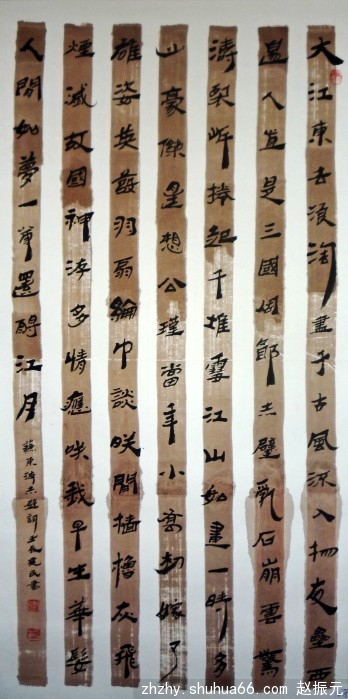 大江東去浪淘盡千古風流人物故壘西
邊人道是三國周郎赤壁亂石崩雲驚
濤裂岸捲起千堆雪江山如畫一時多
少豪傑遙想公瑾當年小喬初嫁了
雄姿英發羽扇綸巾談笑間檣櫓灰飛
煙滅故國神游多情應笑我早生華髮
人間如夢一尊還酹江月
蘇東坡赤壁詞
zhzhy.shuhua66.com 赵振元